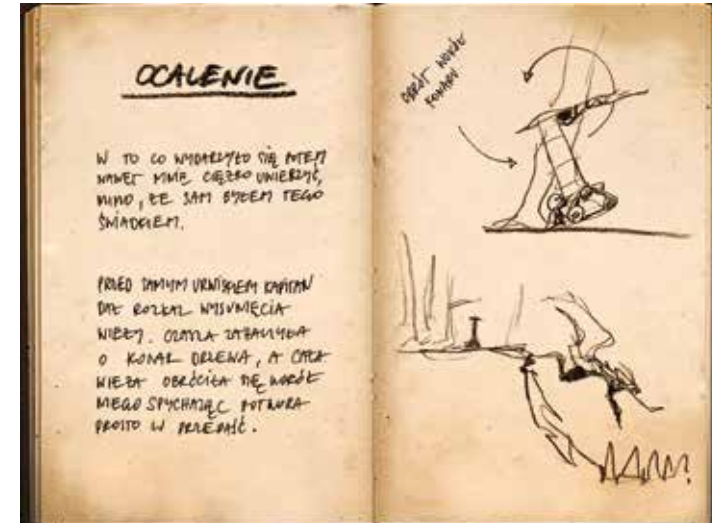 OCALENIE
W TO CO WYDARZYŁO SIĘ POTEM
NAWET MNIE CIĘŻKO UWIERZYĆ,
MIMO, ŻE SAM BYŁEM TEGO
ŚWIADKIEM.
PRZED SAMYM URWISKIEM KAPITAN
DAŁ ROZKAZ WYSUNIĘCIA
WIEŻY. CZASZA ZAHACZYŁA
O KONAR DRZEWA, A CAŁA
WIEŻA OBRÓCIŁA SIĘ WOKÓŁ
NIEGO SPYCHAJĄC POTWORA
PROSTO W PRZEPAŚĆ.
OBRÓT WOKÓŁ
KONARU